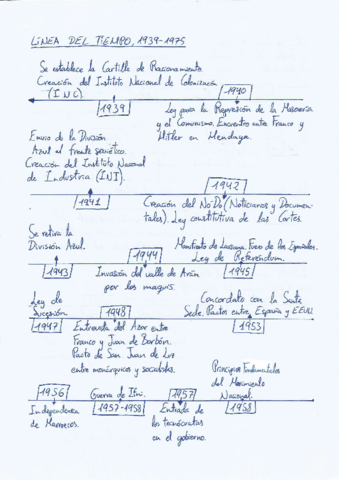 LÍNEA DEL TIEMPO, 1939-1975
Se establece la Cartilla de Racionamiento.
Creación del Instituto Nacional de Colonización
(INC).
1939
1940
Ley para la Represión de la Masonería
y el Comunismo. Encuentro entre Franco y
Hitler en Hendaya.
Envío de la División
Azul al frente soviético.
Creación del Instituto Nacional
de Industria (INI).
1941
1942
Creación del No-Do (Noticiarios y Documen-
tales). Ley constitutiva de las Cortes.
Se retira la
División Azul.
1943
1944
Invasión del valle de Arán
por los maquis.
Manifiesto de Lausana. Fuero de los Españoles.
Ley de Referéndum.
1945
Ley de
Sucesión
1947
1948
Entrevista del Azor entre
Franco y Juan de Borbón.
Pacto de San Juan de Luz
entre monárquicos y socialistas.
Concordato con la Santa
Sede. Pactos entre España y EEUU
1953
1956
Independencia
de Marruecos.
Guerra de Ifni.
1957-1958
1957
Entrada de
los tecnócratas
en el gobierno.
Principios Fundamentales
del Movimiento
Nacional.
1958